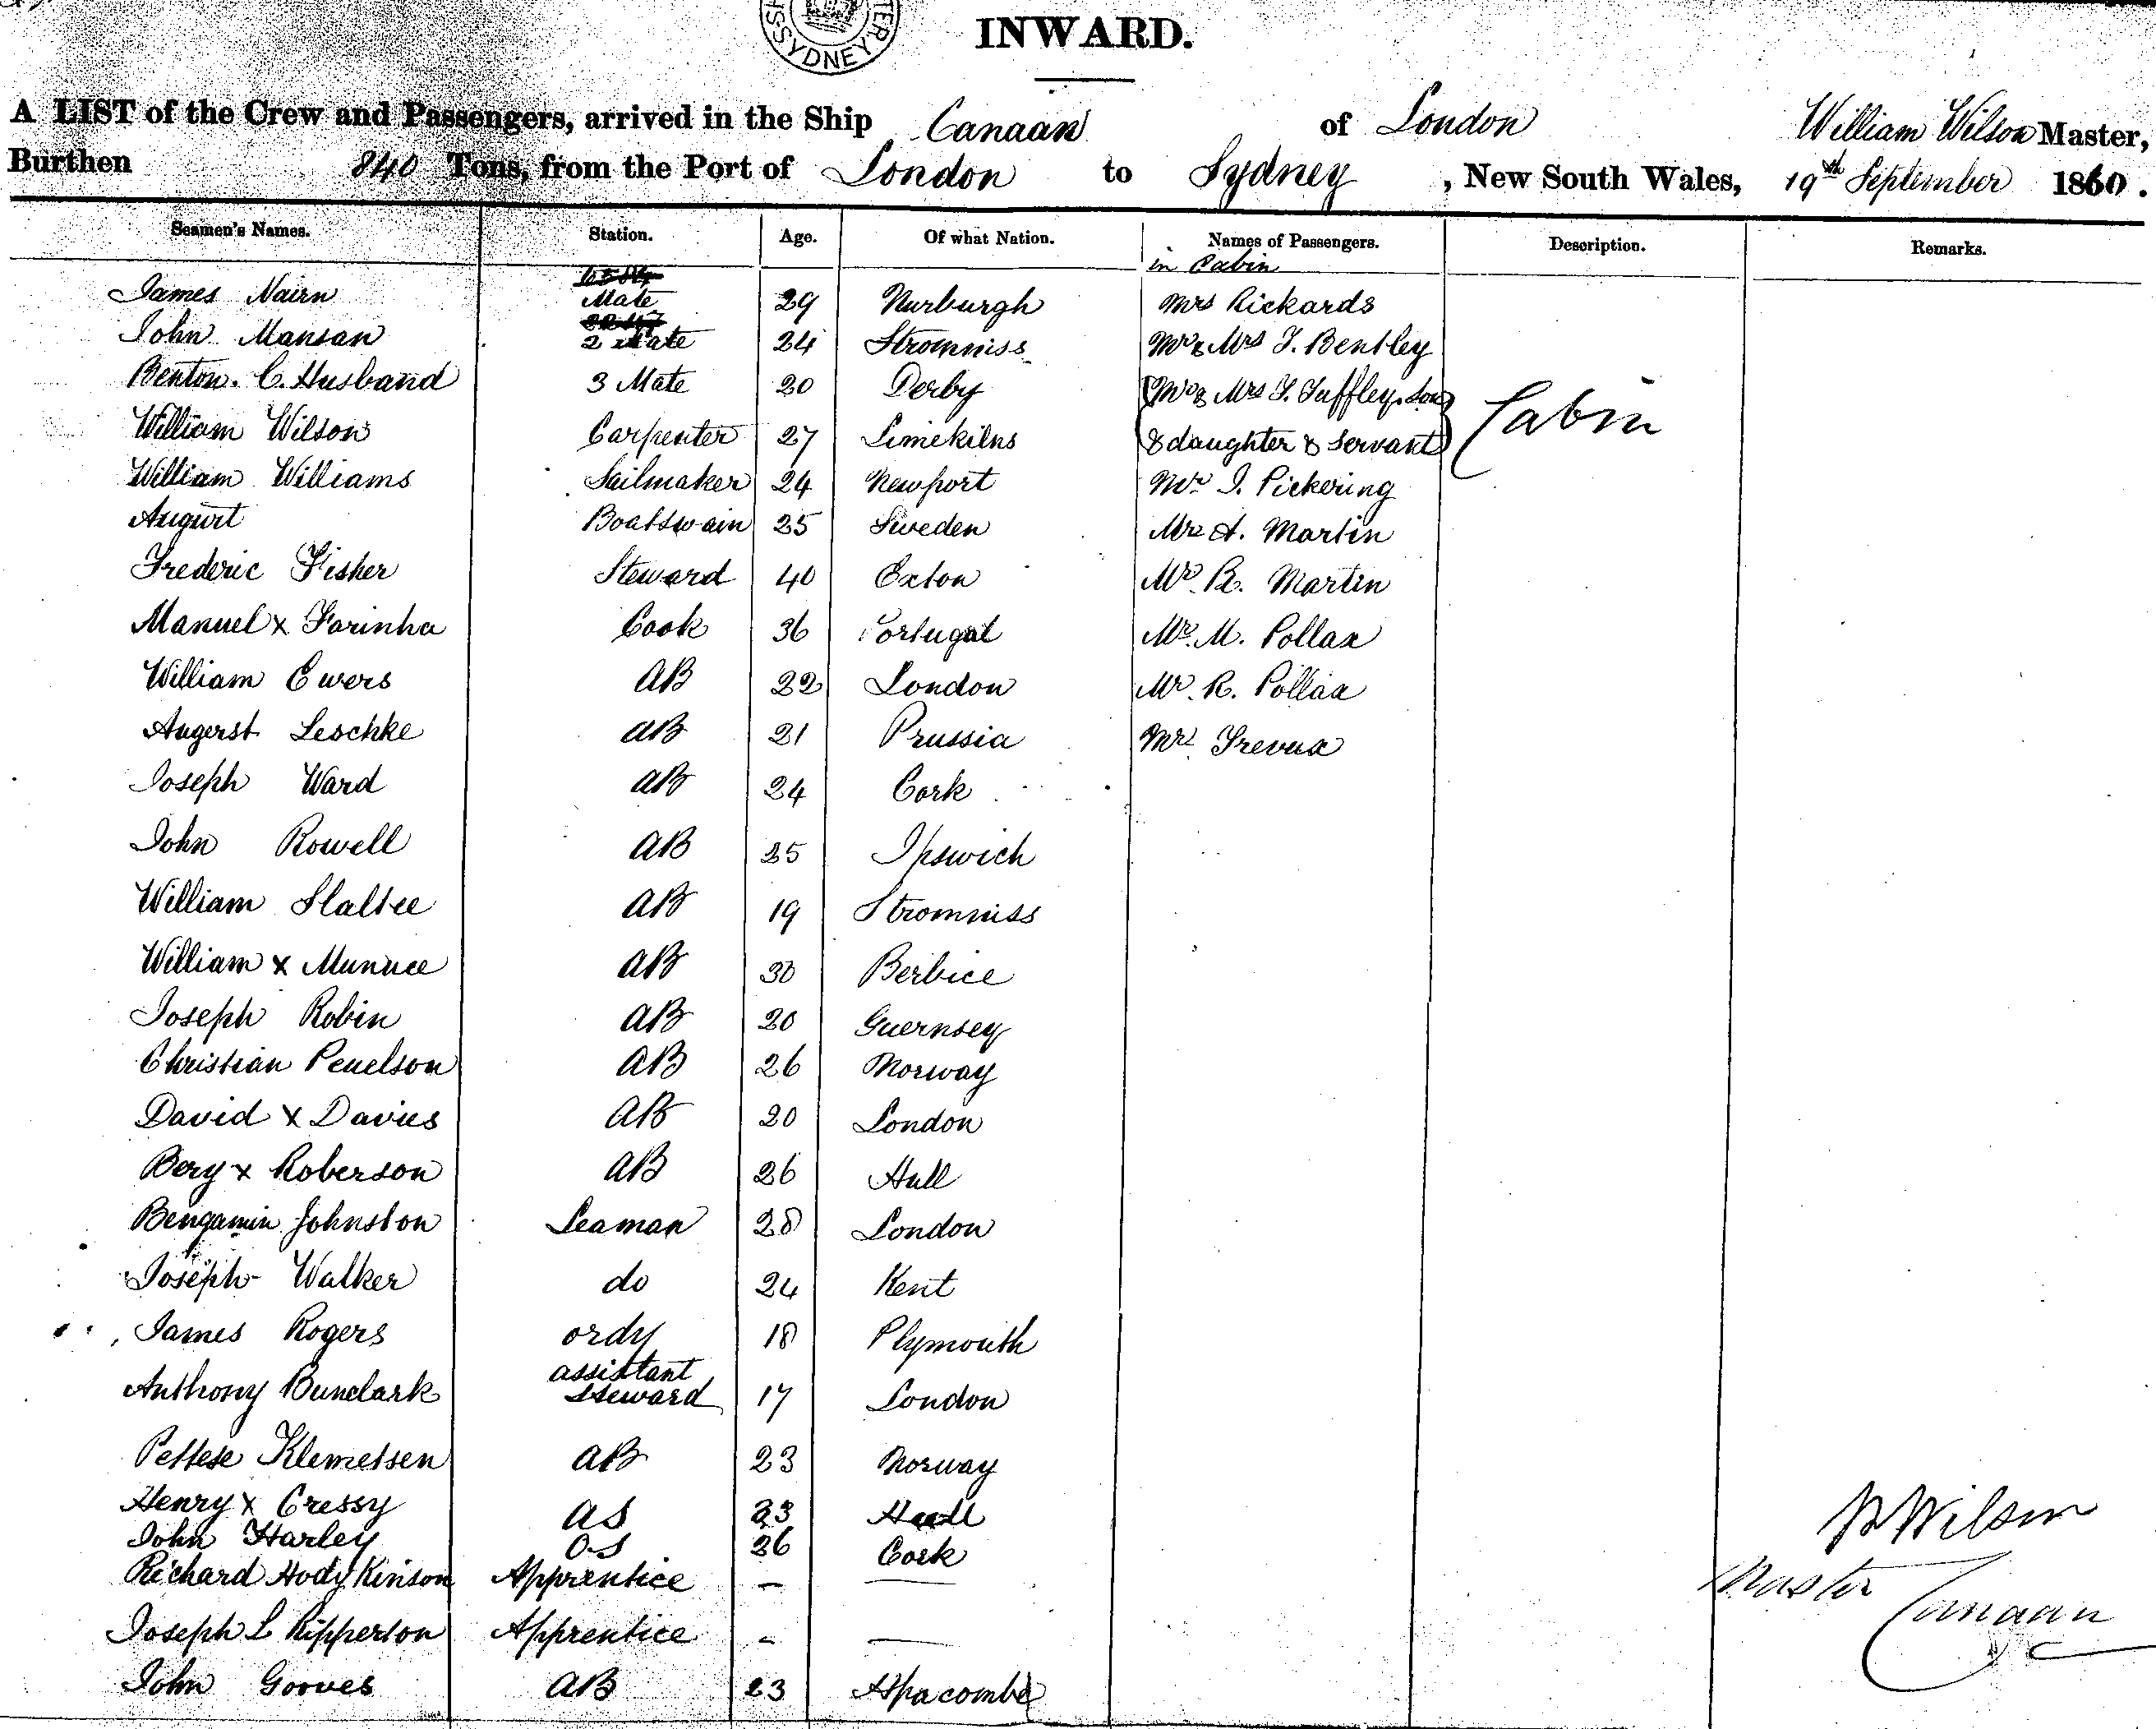 SYDNEY
INWARD.
A LIST of the Crew and Passengers, arrived in the Ship Canaan of London William Wilson Master,
Burthen 840 Tons, from the Port of London to Sydney , New South Wales, 19th September 1860.
Seamen's Names. Station. Age. Of what Nation. Names of Passengers. Description. Remarks.
in Cabin
James Nairn Mate 29 Nurburgh Mrs Rickards
John Mansan 2 Mate 24 Stromniss Mr & Mrs T. Bentley
Benton. C. Husband 3 Mate 20 Derby Mr & Mrs T. Tuffley. Son
William Wilson Carpenter 27 Limekilns & daughter & Servant Cabin
William Williams Sailmaker 24 Newport Mr I. Pickering
August Boatswain 25 Sweden Mr A. Martin
Frederic Fisher Steward 40 Exton Mr R. Martin
Manuel x Farinha Cook 36 Portugal Mr. M. Pollax
William Ewers AB 22 London Mr. R. Pollax
Augerst Leschke AB 21 Prussia Mr Trevux
Joseph Ward AB 24 Cork
John Rowell AB 25 Ipswich
William Slaltee AB 19 Stromniss
William x Munuce AB 30 Berbice
Joseph Robin AB 20 Guernsey
Christian Penelson AB 26 Norway
David x Davies AB 20 London
Bery x Roberson AB 26 Hull
Bengamin Johnston Seaman 28 London
Joseph Walker do 24 Kent
James Rogers ordy 18 Plymouth
assistant
Anthony Bunclark Steward 17 London
Pettese Klemetsen AB 23 Norway
Henry x Cressy AS 23 Hull
John Harley OS 26 Cork
Richard HodyKinson Apprentice –
Joseph L Ripperton Apprentice –
John Gooves AB 23 Aspacombe
W Wilson
Master
Canaan